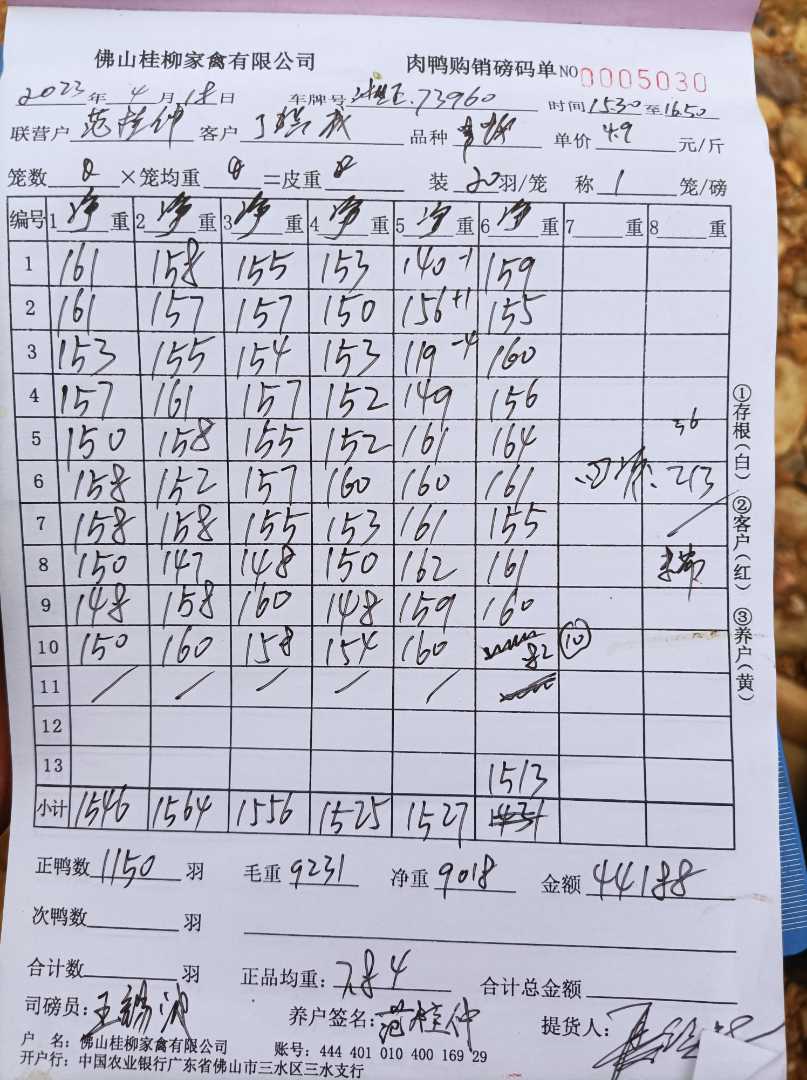 佛山桂柳家禽有限公司 肉鸭购销磅码单 NO 0005030
2023年4月18日 车牌号 73960 时间1530至1650
联营户 范桂仲 客户 品种 单价 4.9 元/斤
笼数 0 ×笼均重 0 =皮重 0 装 20 羽/笼 称 1 笼/磅
编号 1净重 2净重 3净重 4净重 5净重 6净重 7重 8重
1 161 158 155 153 140-1 159
2 161 157 157 150 156+1 155
3 153 155 154 153 119-4 160
4 157 161 157 152 149 156
5 150 158 155 152 161 164 36
6 158 152 157 160 160 161 213
7 158 158 155 153 161 155
8 150 147 148 150 162 161
9 148 158 160 148 159 160
10 150 160 158 154 160 82 10
11 / / / / /
12
13 1513
小计 1546 1564 1556 1525 1527 1431
①存根(白) ②客户(红) ③养户(黄)
正鸭数 1150 羽 毛重 9231 净重 9018 金额 44188
次鸭数 羽
合计数 羽 正品均重: 7.84 合计总金额
司磅员: 养户签名: 范桂仲 提货人:
户 名: 佛山桂柳家禽有限公司 账号: 444 401 010 400 169 29
开户行: 中国农业银行广东省佛山市三水区三水支行